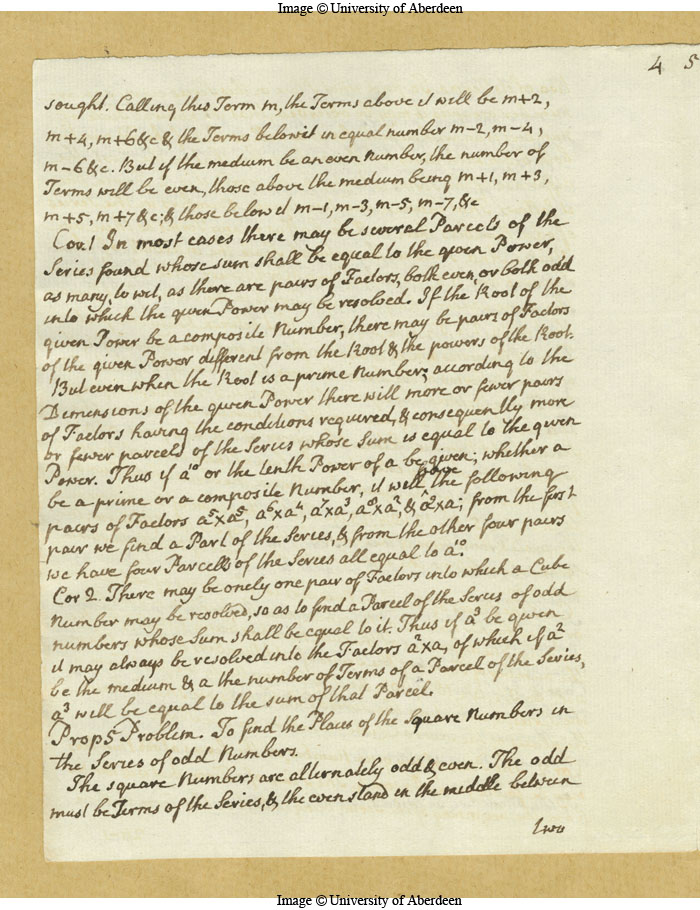 Image © University of Aberdeen
4 5
sought. Calling this Term m, the Terms above it will be m+2,
m+4, m+6 &c & the Terms below it in equal number m-2, m-4,
m-6 &c. But if the medium be an even number, the number of
Terms will be even, those above the medium being m+1, m+3,
m+5, m+7 &c; & those below it m-1, m-3, m-5, m-7, &c
Cor 1 In most cases there may be several Parcels of the
Series found whose sum shall be equal to the given Power,
as many, to wit, as there are pairs of Factors, both even, or both odd
into which the given Power may be resolved. If the Root of the
given Power be a composite Number, there may be pairs of Factors
of the given Power different from the Root & the powers of the Root.
But even when the Root is a prime Number, according to the
Dimensions of the given Power there will more or fewer pairs
of Factors having the conditions required, & consequently more
or fewer parcels of the Series whose Sum is equal to the given
Power. Thus if a¹⁰ or the tenth Power of a be given; whether a
be a prime or a composite Number, it will have the following
pairs of Factors a⁵xa⁵, a⁶xa⁴, a⁷xa³, a⁸xa², & a⁹xa; from the first
pair we find a Part of the Series, & from the other four pairs
we have four Parcells of the Series all equal to a¹⁰
Cor 2. There may be onely one pair of Factors into which a Cube
Number may be resolved, so as to find a Parcel of the Series of odd
numbers whose Sum shall be equal to it. Thus if a³ be given
it may always be resolved into the Factors a²xa, of which if a²
be the medium & a the number of Terms of a Parcell of the Series,
a³ will be equal to the sum of that Parcel.
Prop 5 Problem. To find the Places of the Square Numbers in
the Series of odd Numbers.
The square Numbers are alternately odd & even. The odd
must be Terms of the Series, & the even stand in the middle between
two
Image © University of Aberdeen